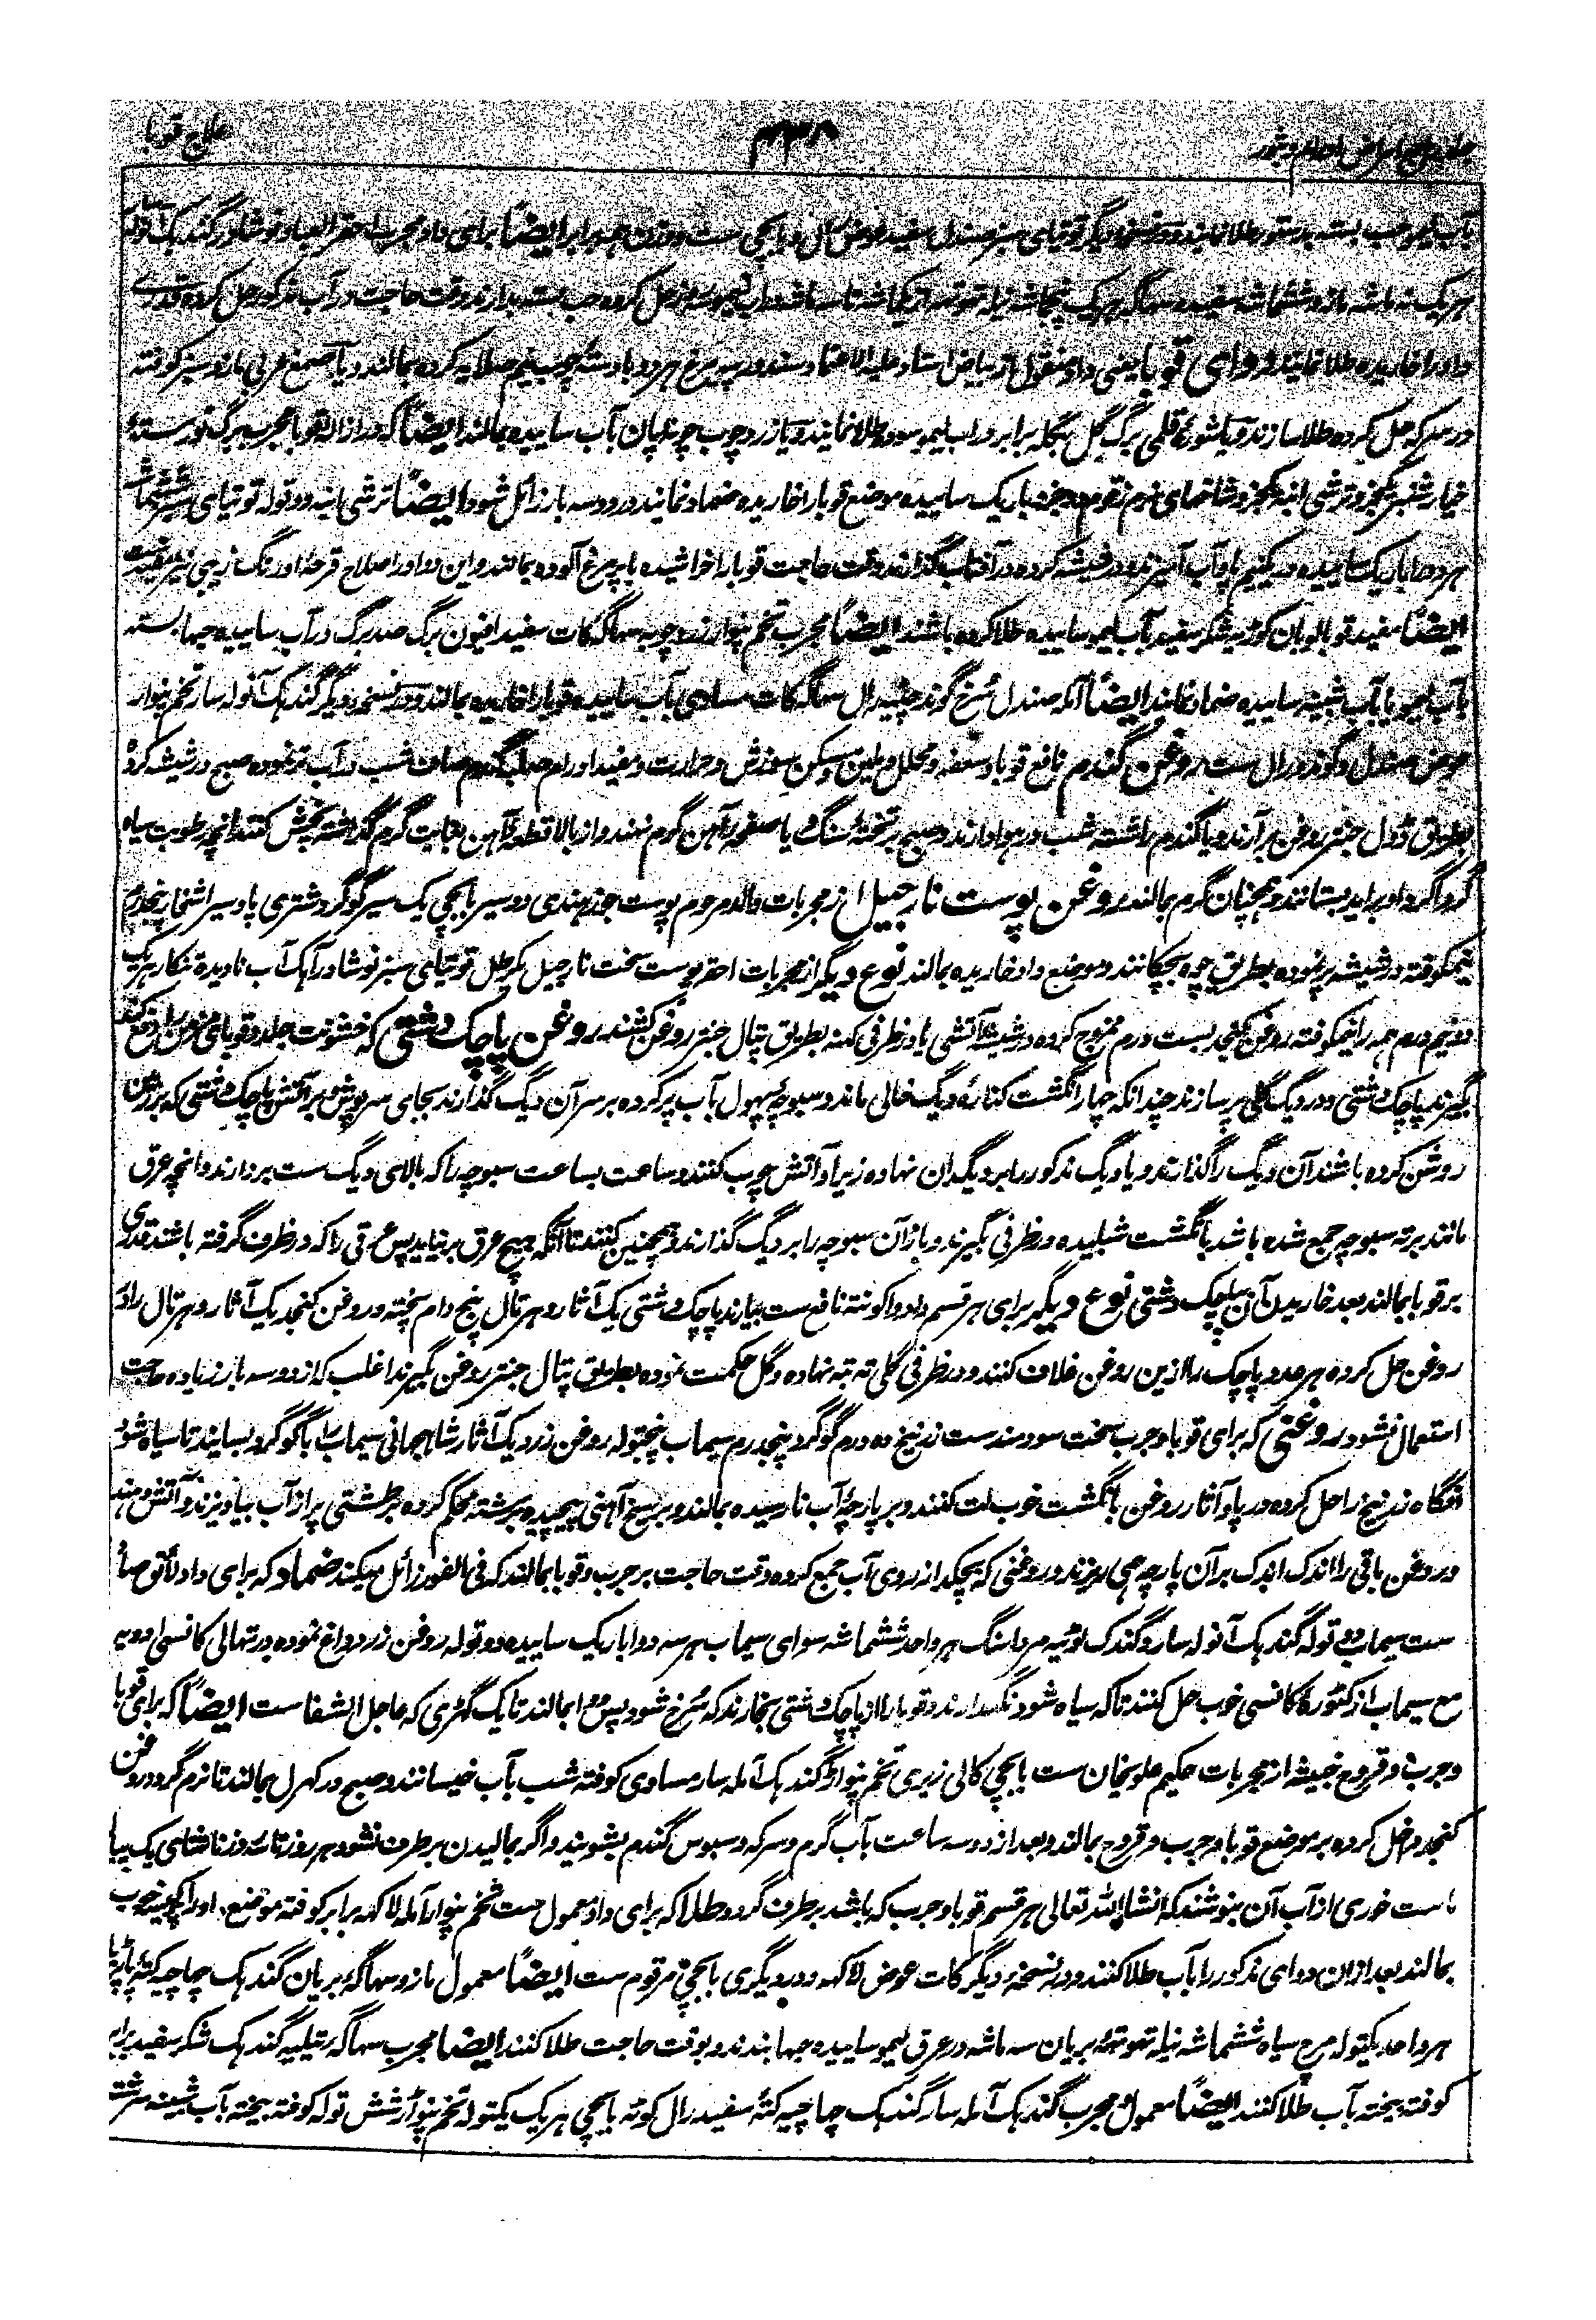 علاج قوبا
بآب لیمو حب بسته بدستور طلا نمایند و در نسخه دیگر توتیای سبز صندل سفید عوض رال و بابچی ست و وزن همه برابر ایضاً برای داد مجرب احقر العباد نوشادر گندهک آنوله
هر یک سه ماشه مازو ششماشه سفیده سهاگه هر یک پنجماشه نیله تهوتهه یکماشه تا سه ماشه در آب لیمو سه روز حل کرده حب بسته بدارند وقت حاجت در آب مذکور حل کرده قدری
داد را خاریده طلا نمایند دوای قوبا یعنی داد منقول از بیاض استاد علیه الاعتماد سندور پیه مرغ هر دو با دسته چوب نیم صلایه کرده بمالند و یا صمغ عربی مازو سبز کوفته
در سرکه حل کرده طلا سازند و یا شوره قلمی برگ گل بنگله برابر در آب لیمو سوده طلا نمایند و یا زردچوب چونه پان بآب ساییده بمالند ایضاً که در ازاله قوبا مجرب برگ نورسته
خیارشنبر یکجزو ترشی انبه یکجزو شاخهای نرم زقوم دو جزو باریک ساییده موضع قوبا را خاریده ضماد نمایند در دو سه بار زائل شود ایضاً ترشی انبه دو توله توتیای سبز ششماشه
هر دو را باریک ساییده در یکنیم پاو آب آمیزند و در شیشه کرده در آفتاب گذارند وقت حاجت قوبا را خراشیده با پر مرغ آلوده بمالند و این دوا در اصلاح قرحه اورنگ زیبی نیز مفید ست
ایضاً مفید قوبا لوبان کوڑیه شکر سفید بآب لیمو ساییده طلا کرده باشند ایضاً مجرب تخم پنوار زردچوبه سهاگه کات سفید افیون برگ صد برگ در آب ساییده حبها بسته
بآب لیمو یا بآب شبینه ساییده ضماد نمایند ایضاً آنکه صندل سرخ گوند چنیه رال سهاگه کات مساوی بآب ساییده قوبا را خاریده بمالند و در نسخه دیگر گندهک آنوله سار تخم پنوار
عوض صندل و گوند و رال ست روغن گندم نافع قوبا و سعفه و محلل و ملین و مسکن سوزش و حرارت و مفید اورام صلب گندم صاف شب در آب تر نموده صبح در شیشه کرده
بطریق ڈول جنتر روغن برآرند و یا گندم را شسته شب در هوا دارند و صبح بر تخته سنگ و یا صفحه آهن گرم نهند و از بالا قطعه آهن بغایت گرم گذاشته بجوش کنند آنچه رطوبت سیاه
گرداگرد او برآید بستانند و همچنان گرم بمالند روغن پوست نارجیل از مجربات والد مرحوم پوست جوز هندی دو سیر بابچی یک سیر گوگرد شتری پاو سیر اشخار پنجدرم
نیمکوفته در شیشه پر نموده بطریق چوه بچکانند و موضع داد خاریده بمالند نوع دیگر از مجربات احقر پوست سخت نارجیل کرطل توتیای سبز نوشادر آهک آب نادیده تنکار هر یک
دو نیم درم همه را نیمکوفته روغن کنجد بست درم ممزوج کرده در شیشه آتشی یا در ظرفی کهنه بطریق پتال جنتر روغن کشند روغن پاچک دشتی که خشونت جلد و قوبای مزمن را دفع کند
بگیرند پاچک دشتی و در دیگ گلی پر سازند چندانکه چهار انگشت کناره دیگ خالی ماند و سبوچه پهول بآب پر کرده بر سر آن دیگ گذارند بجای سرپوش و بر آتش پاچک دشتی که بر زمین
روشن کرده باشند آن دیگ را گذارند و یا دیگ مذکور را بر دیگدان نهاده زیر او آتش چوب کنند و ساعت بساعت سبوچه را که بالای دیگ ست بردارند و آنچه عرق
مانند بر ته سبوچه جمع شده باشد بانگشت شبلیده در ظرفی بگیرند و باز آن سبوچه را بر دیگ گذارند و همچنین کنند تا آنکه هیچ عرق بر نیاید پس عرقی را که در ظرف گرفته باشند قدری
بر قوبا بمالند بعد خاریدن آن بپاچک دشتی نوع دیگر برای هر قسم داد و اکوته نافع ست بیارند پاچک دشتی یک آثار و هرتال پنج دام پخته و روغن کنجد یک آثار و هرتال را در
روغن حل کرده هر عدد پاچک را ازین روغن غلاف کنند و در ظرفی گلی ته بته نهاده و گل حکمت نموده بطریق پتال جنتر روغن بگیرند اغلب که از دو سه بار زیاده حاجت
استعمال نشود روغنی که برای قوبا و جرب سخت سودمند ست زرنیخ ده درم گوگرد پنجدرم سیماب پنجتوله روغن زرد یک آثار شاهجهانی سیماب را با گوگرد بسایند تا سیاه شود
آنگاه زرنیخ را حل کرده در پاو آثار روغن بانگشت خوب لت کنند و بر پارچه آب نارسیده بمالند و بر سیخ آهنی پیچیده برشته محکم کرده بر طشتی پر از آب بیاویزند و آتش دهند
و روغن باقی را اندک اندک بر آن پارچه همی ریزند و روغنی که بچکد از روی آب جمع کرده وقت حاجت بر جرب و قوبا بمالند که فی الفور زائل میکند ضماد که برای داد لائق صد
ست سیماب دو توله گندهک آنوله سار و گندک لوٹیه مرداسنگ هر واحد ششماشه سوای سیماب هر سه دوا باریک ساییده دو توله روغن زرد داغ نموده در تهالی کانسی ادویه
مع سیماب از کٹوره کانسی خوب حل کنند تا که سیاه شود نگهدارند و قوبا را از پاچک دشتی بخارند که سرخ شود پس دوا بمالند تا یک گهڑی که عاجل الشفا ست ایضاً که برای قوبا
و جرب و قروح خبیثه از مجربات حکیم علویخان ست بابچی کالی زیری تخم پنواڑ گندهک آمله سار مساوی کوفته شب بآب خیسانند و صبح در کهرل بمالند تا نرم گردد و روغن
کنجد داخل کرده بر موضع قوبا و جرب و قروح بمالند و بعد از دو سه ساعت بآب گرم و سرکه و سبوس گندم بشویند و اگر بمالیدن برطرف نشود هر روز تا سه روز ناشتای یک پیا
است خوری از آب آن بنوشند که انشاءالله تعالی هر قسم قوبا و جرب که باشد برطرف گردد طلا که برای داد معمول ست تخم پنوار آمله لاکهه برابر کوفته موضع خوب
بمالند بعد ازان دوای مذکور را بآب طلا کنند و در نسخه دیگر کات عوض لاکهه و در دیگری بابچی مرقوم ست ایضاً معمول مازو سهاگه بریان گندهک چهاچیه کتهه پاپڑیا
هر واحد یکتوله مرچ سیاه ششماشه نیله تهوتهه بریان سه ماشه در عرق لیمو ساییده حبها بندند و بوقت حاجت طلا کنند ایضاً مجرب سهاگه تیلیه گندهک شکر سفید برابر
کوفته بیخته بآب طلا کنند ایضاً معمول و مجرب گندهک آمله سار گندهک چهاچیه کتهه سفید رال کوٹه بابچی هر یک یکتوله تخم پنواڑ شش توله کوفته بیخته بآب شبینه سرشته